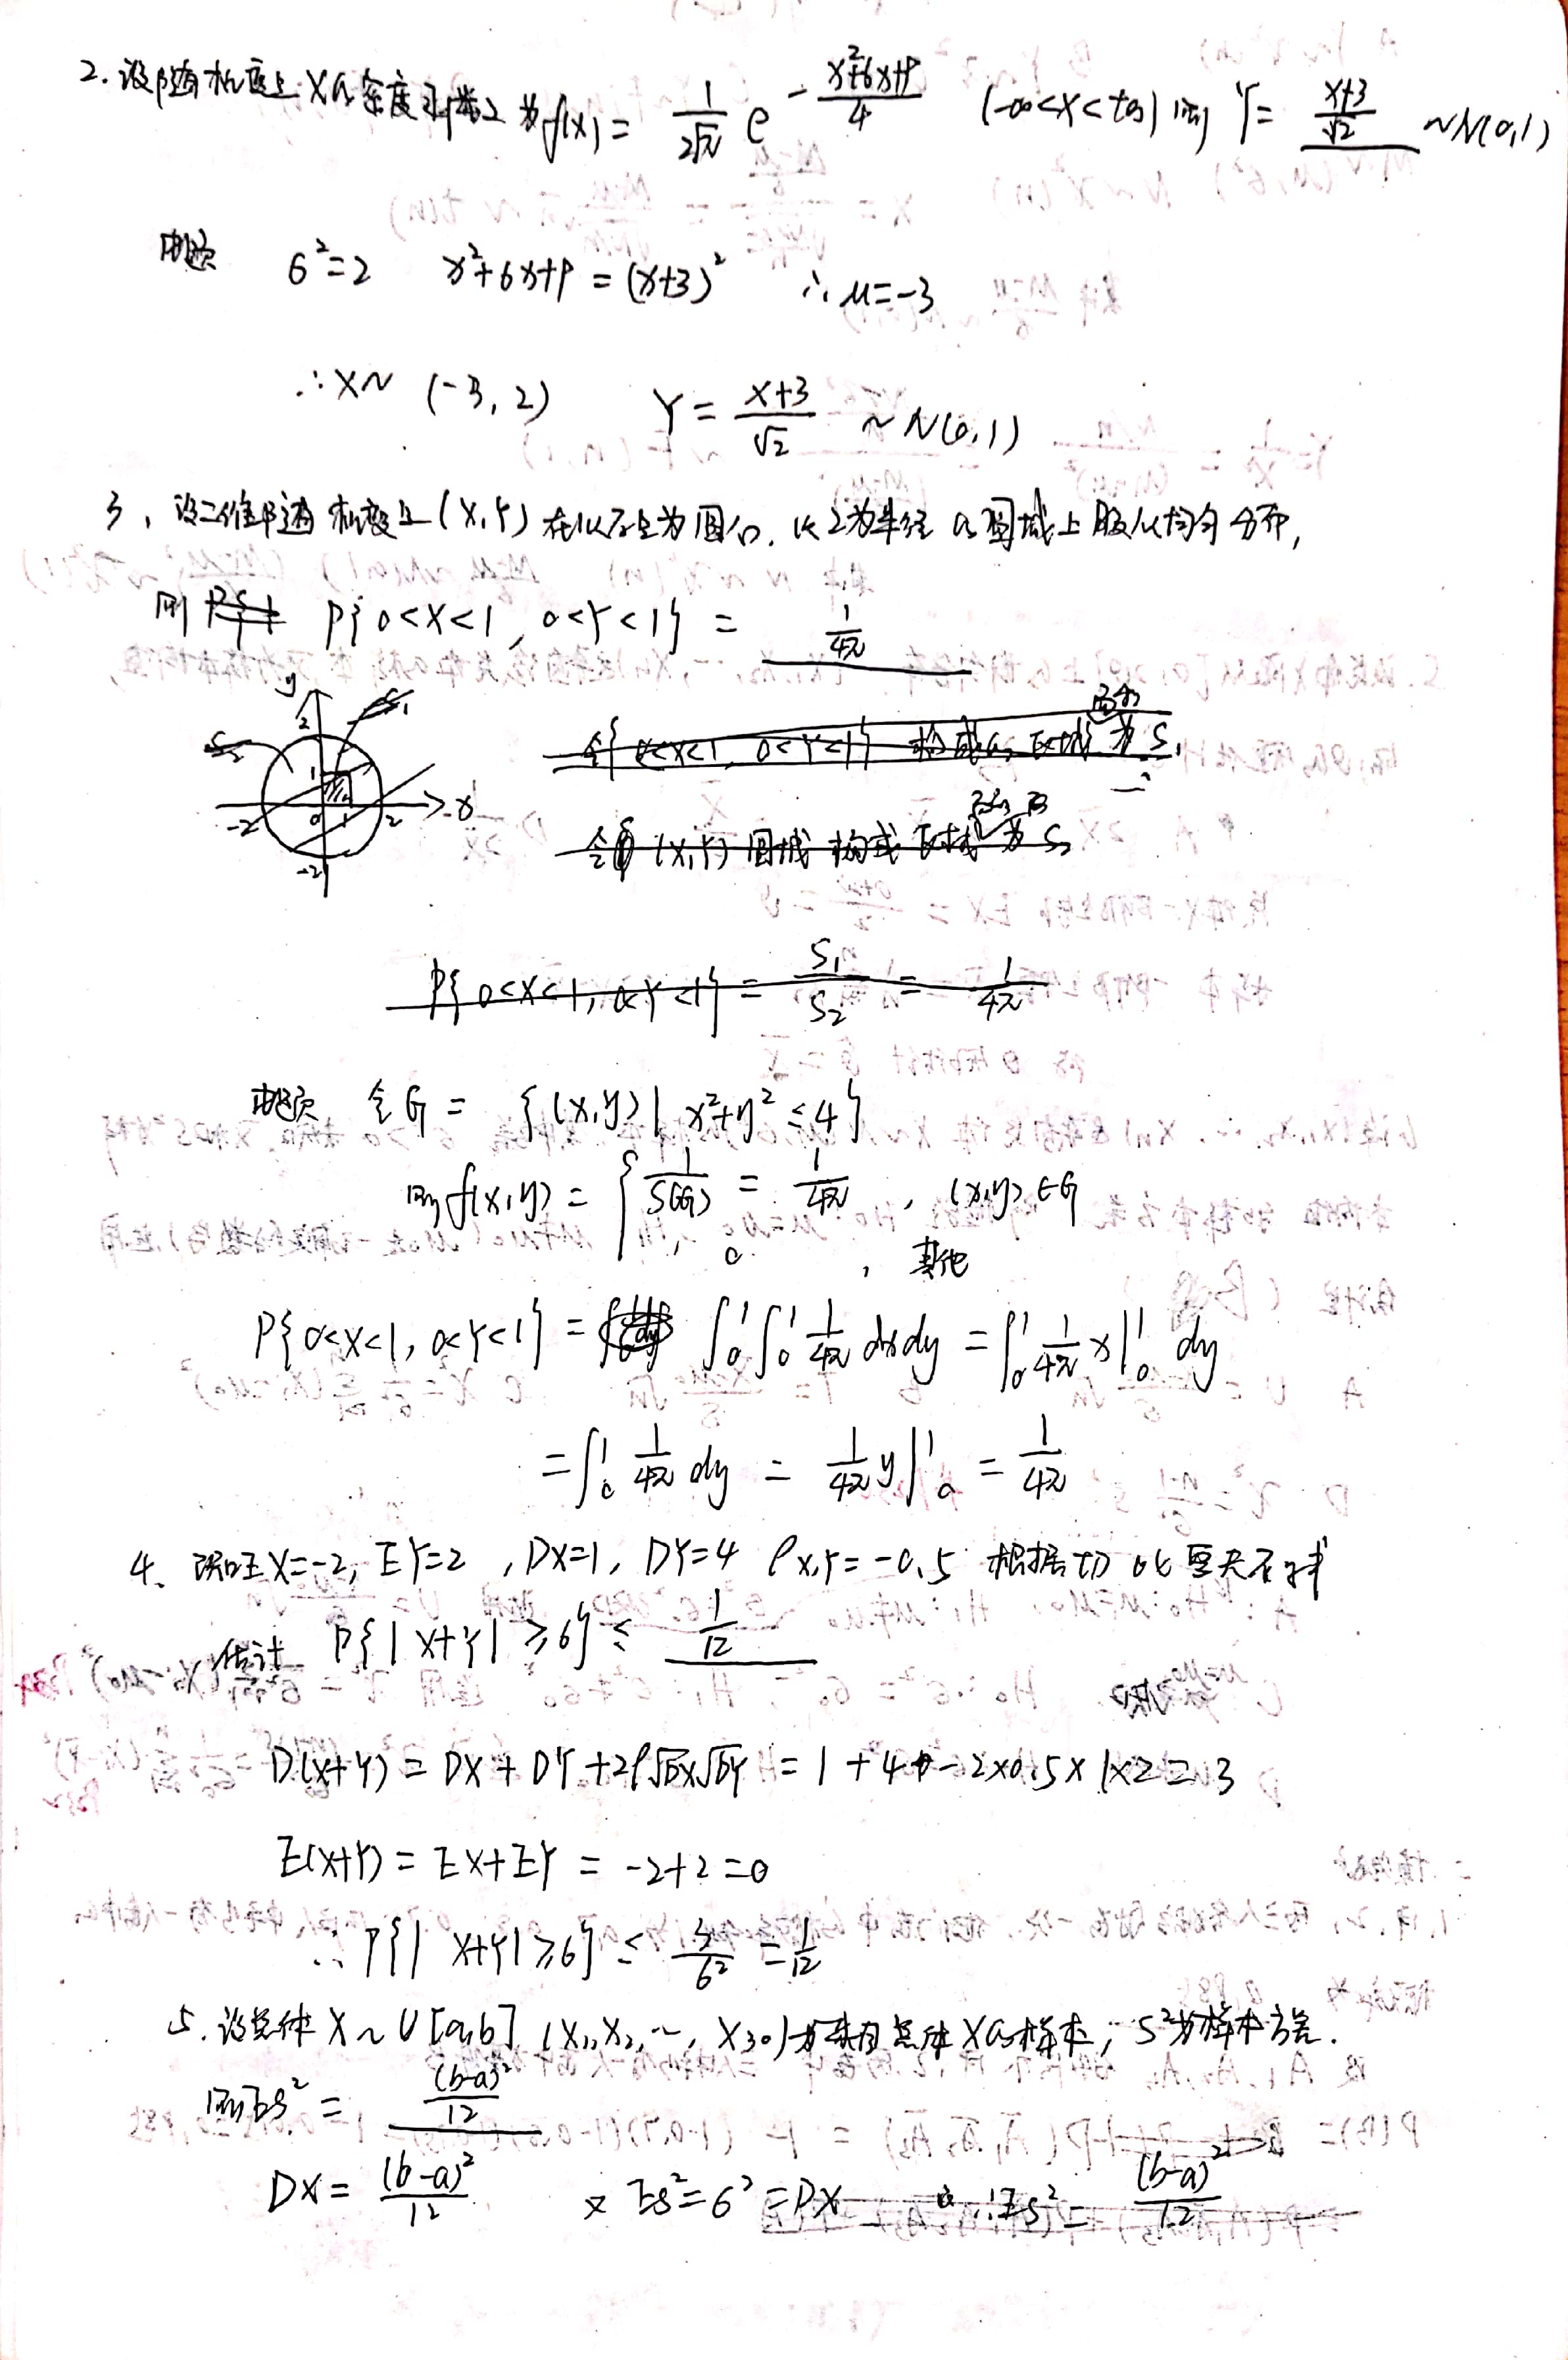 2. 设随机变量X的密度函数为f(x) = \frac{1}{2\sqrt{π}} e^{-\frac{x²+6x+9}{4}} (-∞<x<+∞) 则 Y = \frac{x+3}{\sqrt{2}} ~N(0,1)
由题 σ²=2 x²+6x+9 = (x+3)² ∴ μ=-3
∴X~ (-3, 2) Y = \frac{x+3}{\sqrt{2}} ~ N(0,1)
3、设二维随机变量(X,Y)在以原点为圆心,以2为半径的圆域上服从均匀分布,
则 P{0<X<1, 0<Y<1} = \frac{1}{4π}
y 2 S₁
S₂ 1
-2 0 1 2 x
-2
令{0<X<1, 0<Y<1} 构成的区域面积为S₁
令(X,Y)圆域构成区域面积为S₂
P{0<X<1, 0<Y<1} = \frac{S₁}{S₂} = \frac{1}{4π}
由题 令G = {(x,y)| x²+y² ≤4}
则f(x,y) = { \frac{1}{S(G)} = \frac{1}{4π} , (x,y)∈G
0 , 其他
P{0<X<1, 0<Y<1} = ∫₀¹∫₀¹ \frac{1}{4π} dxdy = ∫₀¹ \frac{1}{4π} x|₀¹ dy
= ∫₀¹ \frac{1}{4π} dy = \frac{1}{4π} y|₀¹ = \frac{1}{4π}
4、 EX=-2, EY=2, DX=1, DY=4 ρx,y=-0.5 根据切比雪夫不等式
估计 P{|X+Y| ≥6} ≤ \frac{1}{12}
D(X+Y) = DX + DY + 2ρ\sqrt{DX}\sqrt{DY} = 1 + 4 - 2×0.5×1×2 = 3
E(X+Y) = EX+EY = -2+2=0
∴ P{|X+Y|≥6} ≤ \frac{3}{6²} = \frac{1}{12}
5. 设总体X~U[a,b] (X₁,X₂,…,X₃₀)为来自总体X的样本, S²为样本方差.
则ES² = \frac{(b-a)²}{12}
DX = \frac{(b-a)²}{12} 又 ES²=σ²=DX ∴ES² = \frac{(b-a)²}{12}